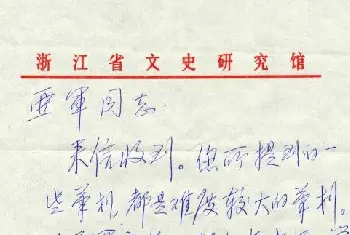 浙江省文史研究馆
亚軍同志
来信收到。您所提到的一
些華刹，都是难度较大的華刹。